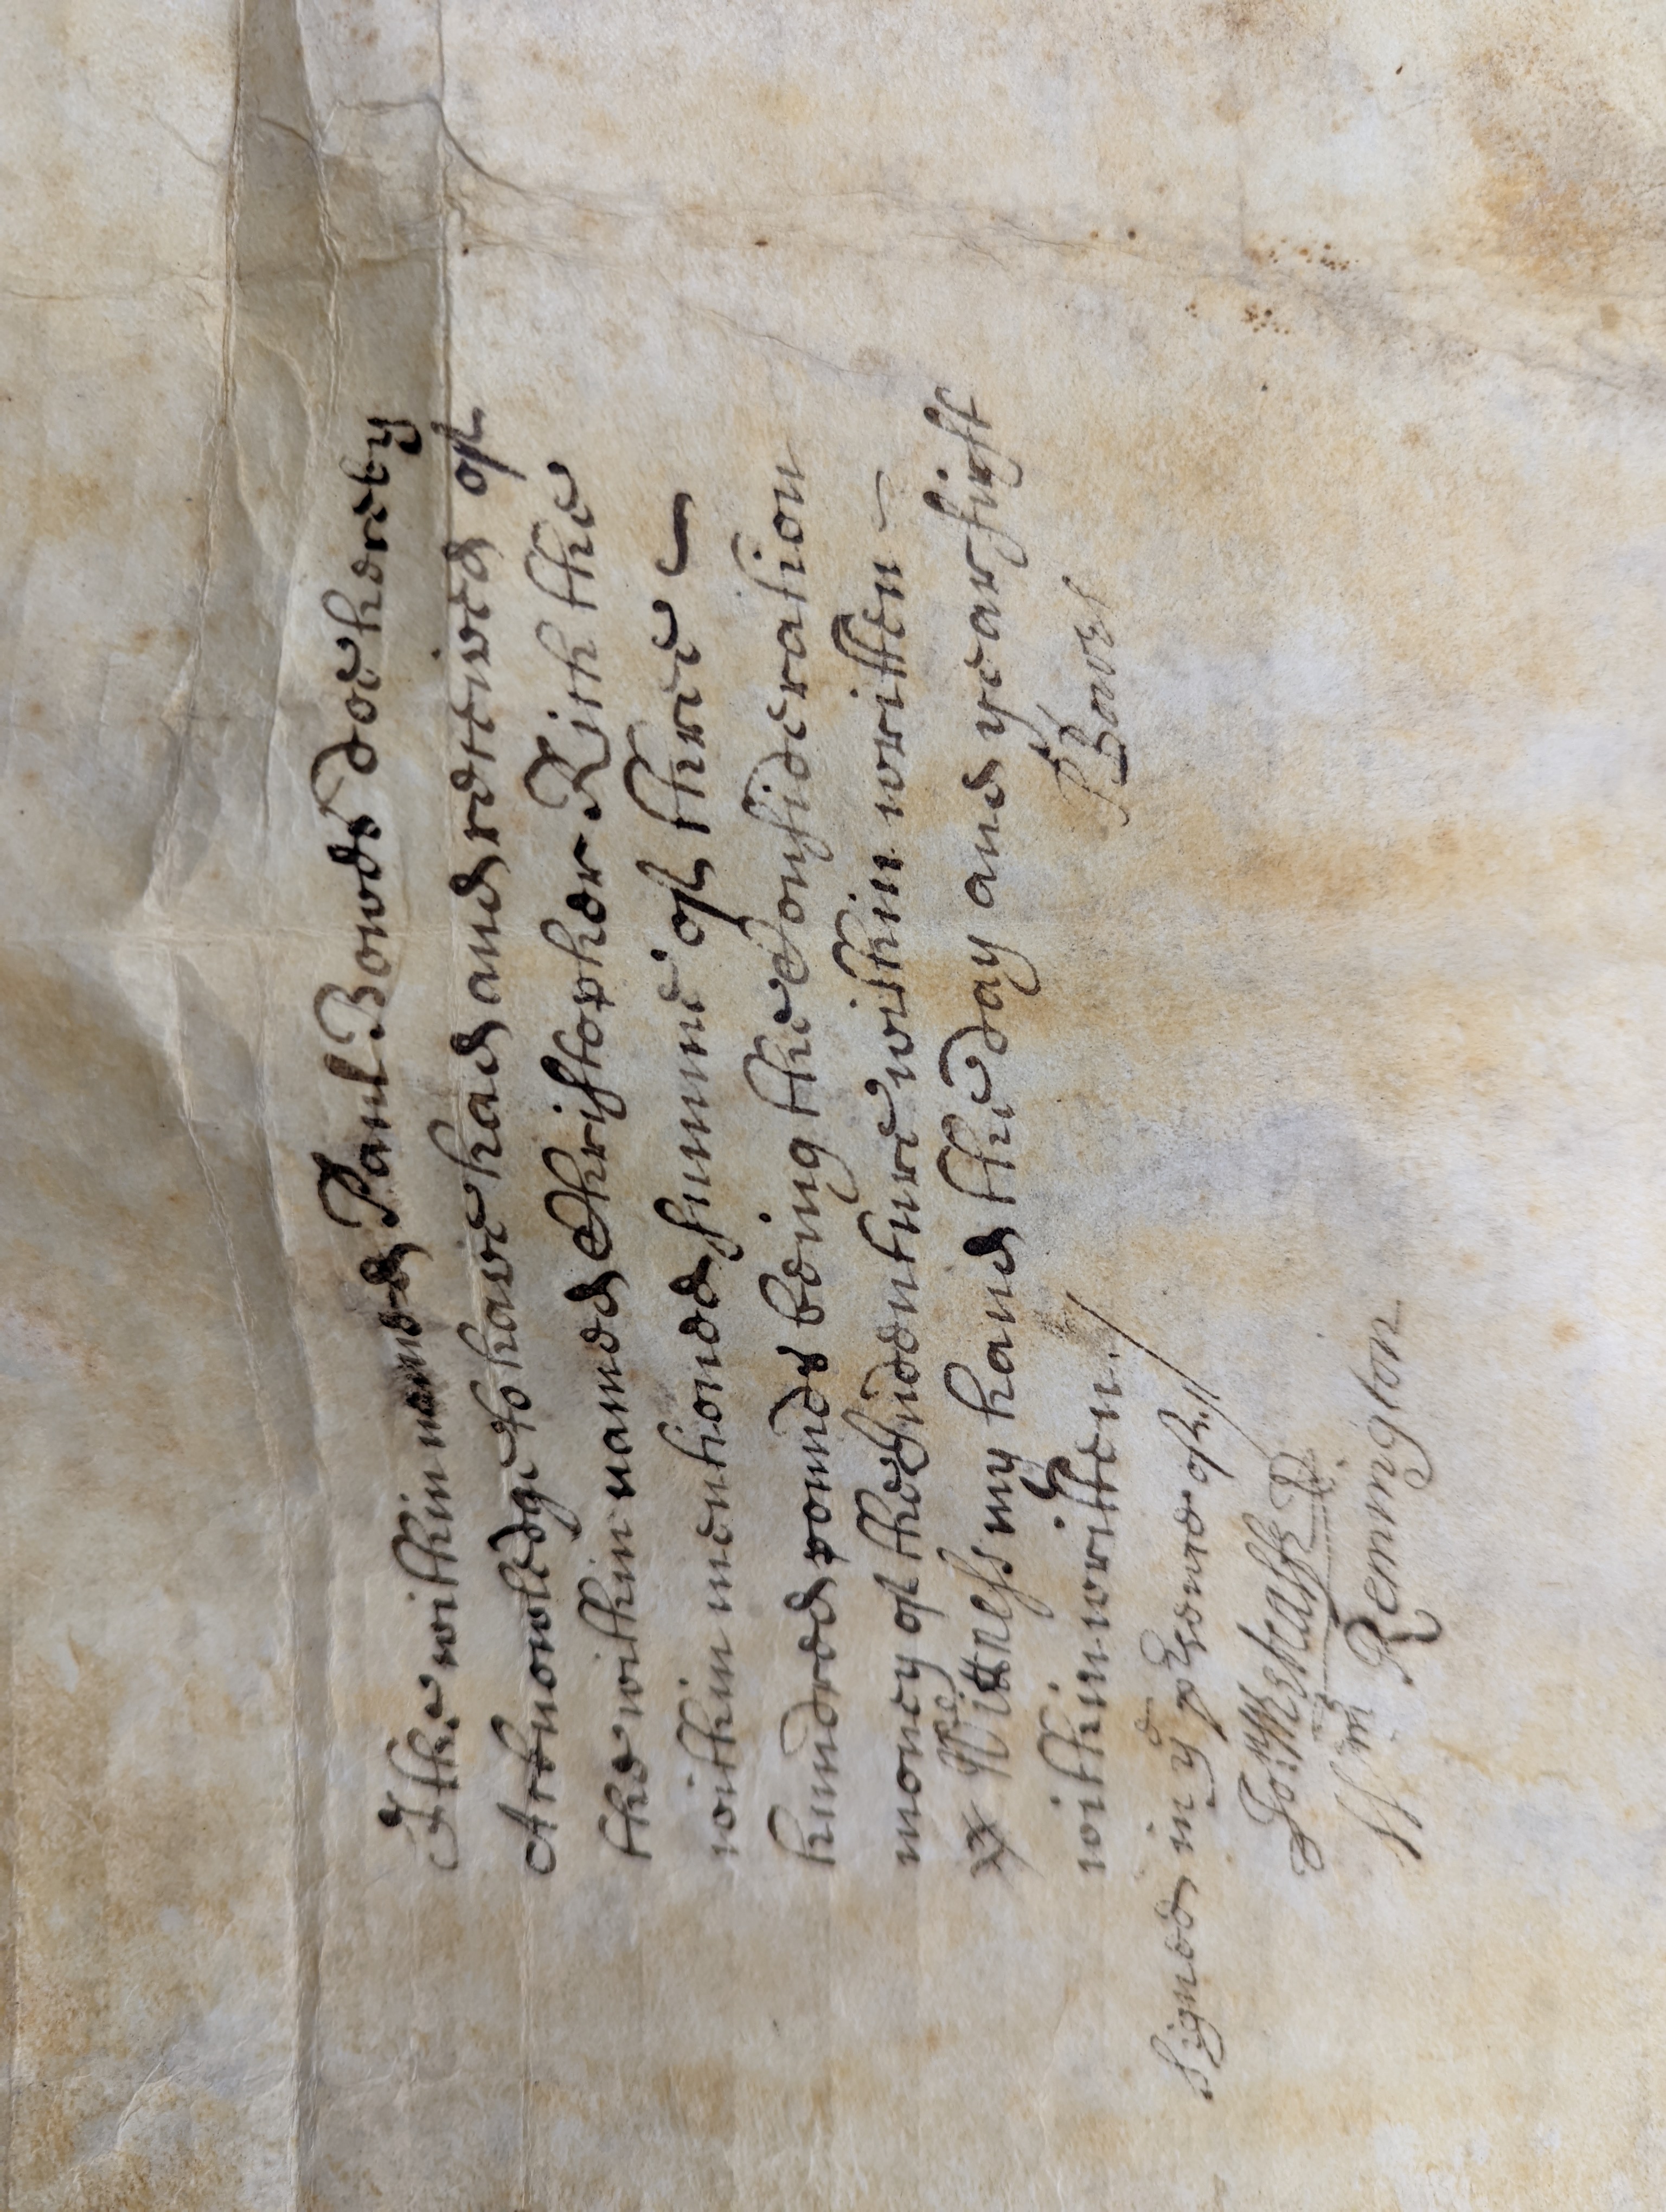 I the within named Paul Bowes doe hereby
Acknowledge to have had and received of
the within named Christopher Kirk the
within mentioned summe of three
hundred pounds being the Consideration
money of the Indenture within written
Witness my hand the day and year first
within written.
P Bowes
Signed in ye psence of
Wm Remington